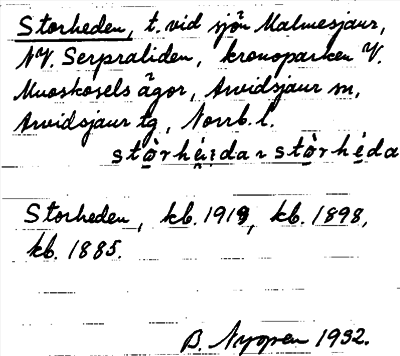 Storheden, t. vid sjön Malmesjaur,
NV. Serpraliden, kronoparken V.
Muoskosels ägor, Arvidsjaur sn,
Arvidsjaur tg, Norrb. l.
stòrhèida ~ stòrhéda
Storheden, kb. 1919, kb. 1898,
kb. 1885.
B. Nyopen 1932.